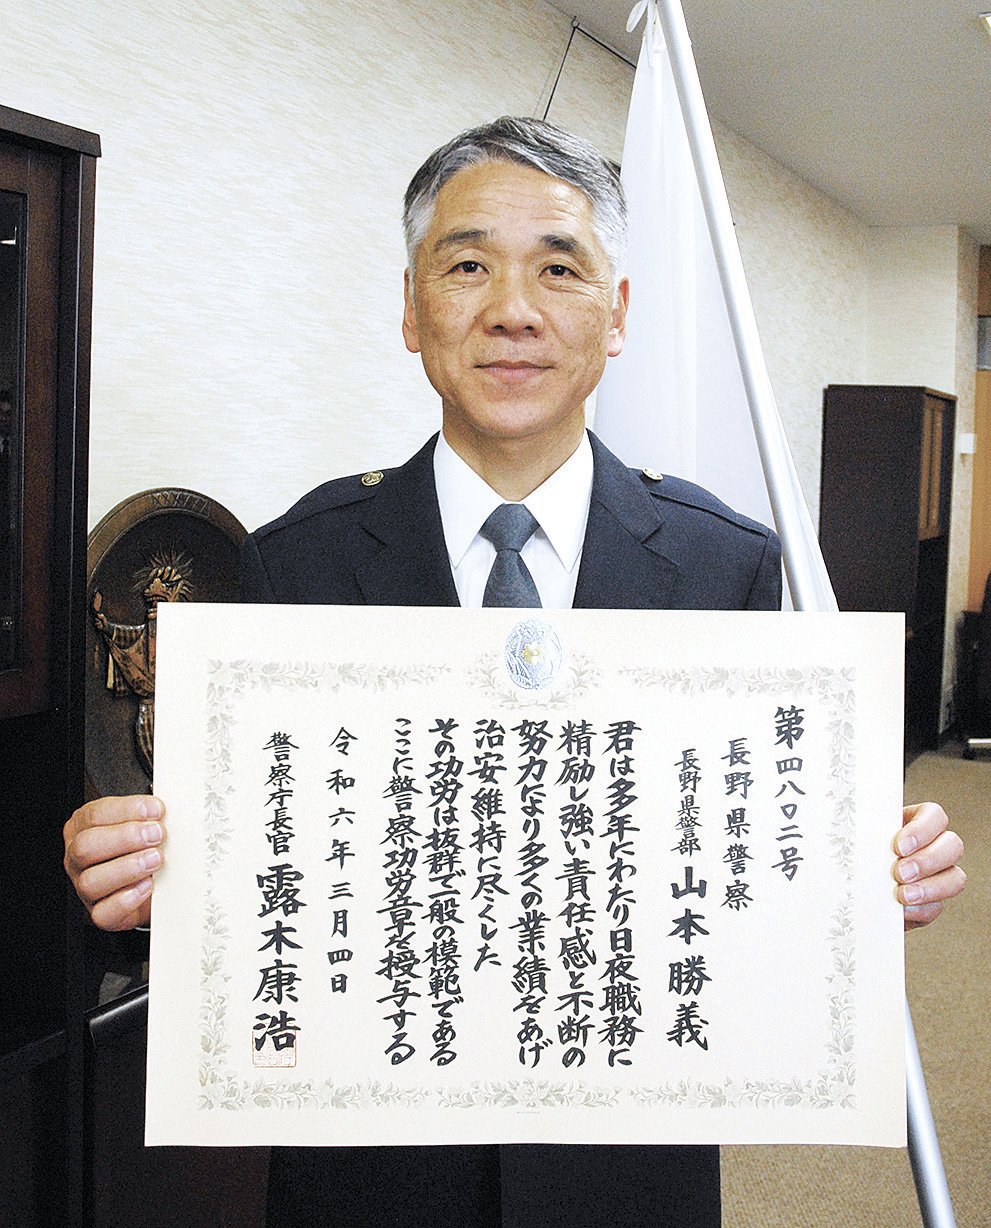 第四八〇二号
長野県警察
長野県警部 山本勝義
君は多年にわたり日夜職務に
精励し強い責任感と不断の
努力により多くの業績をあげ
治安維持に尽くした
その功労は抜群で一般の模範である
ここに警察功労章を授与する
令和六年三月四日
警察庁長官 露木康浩